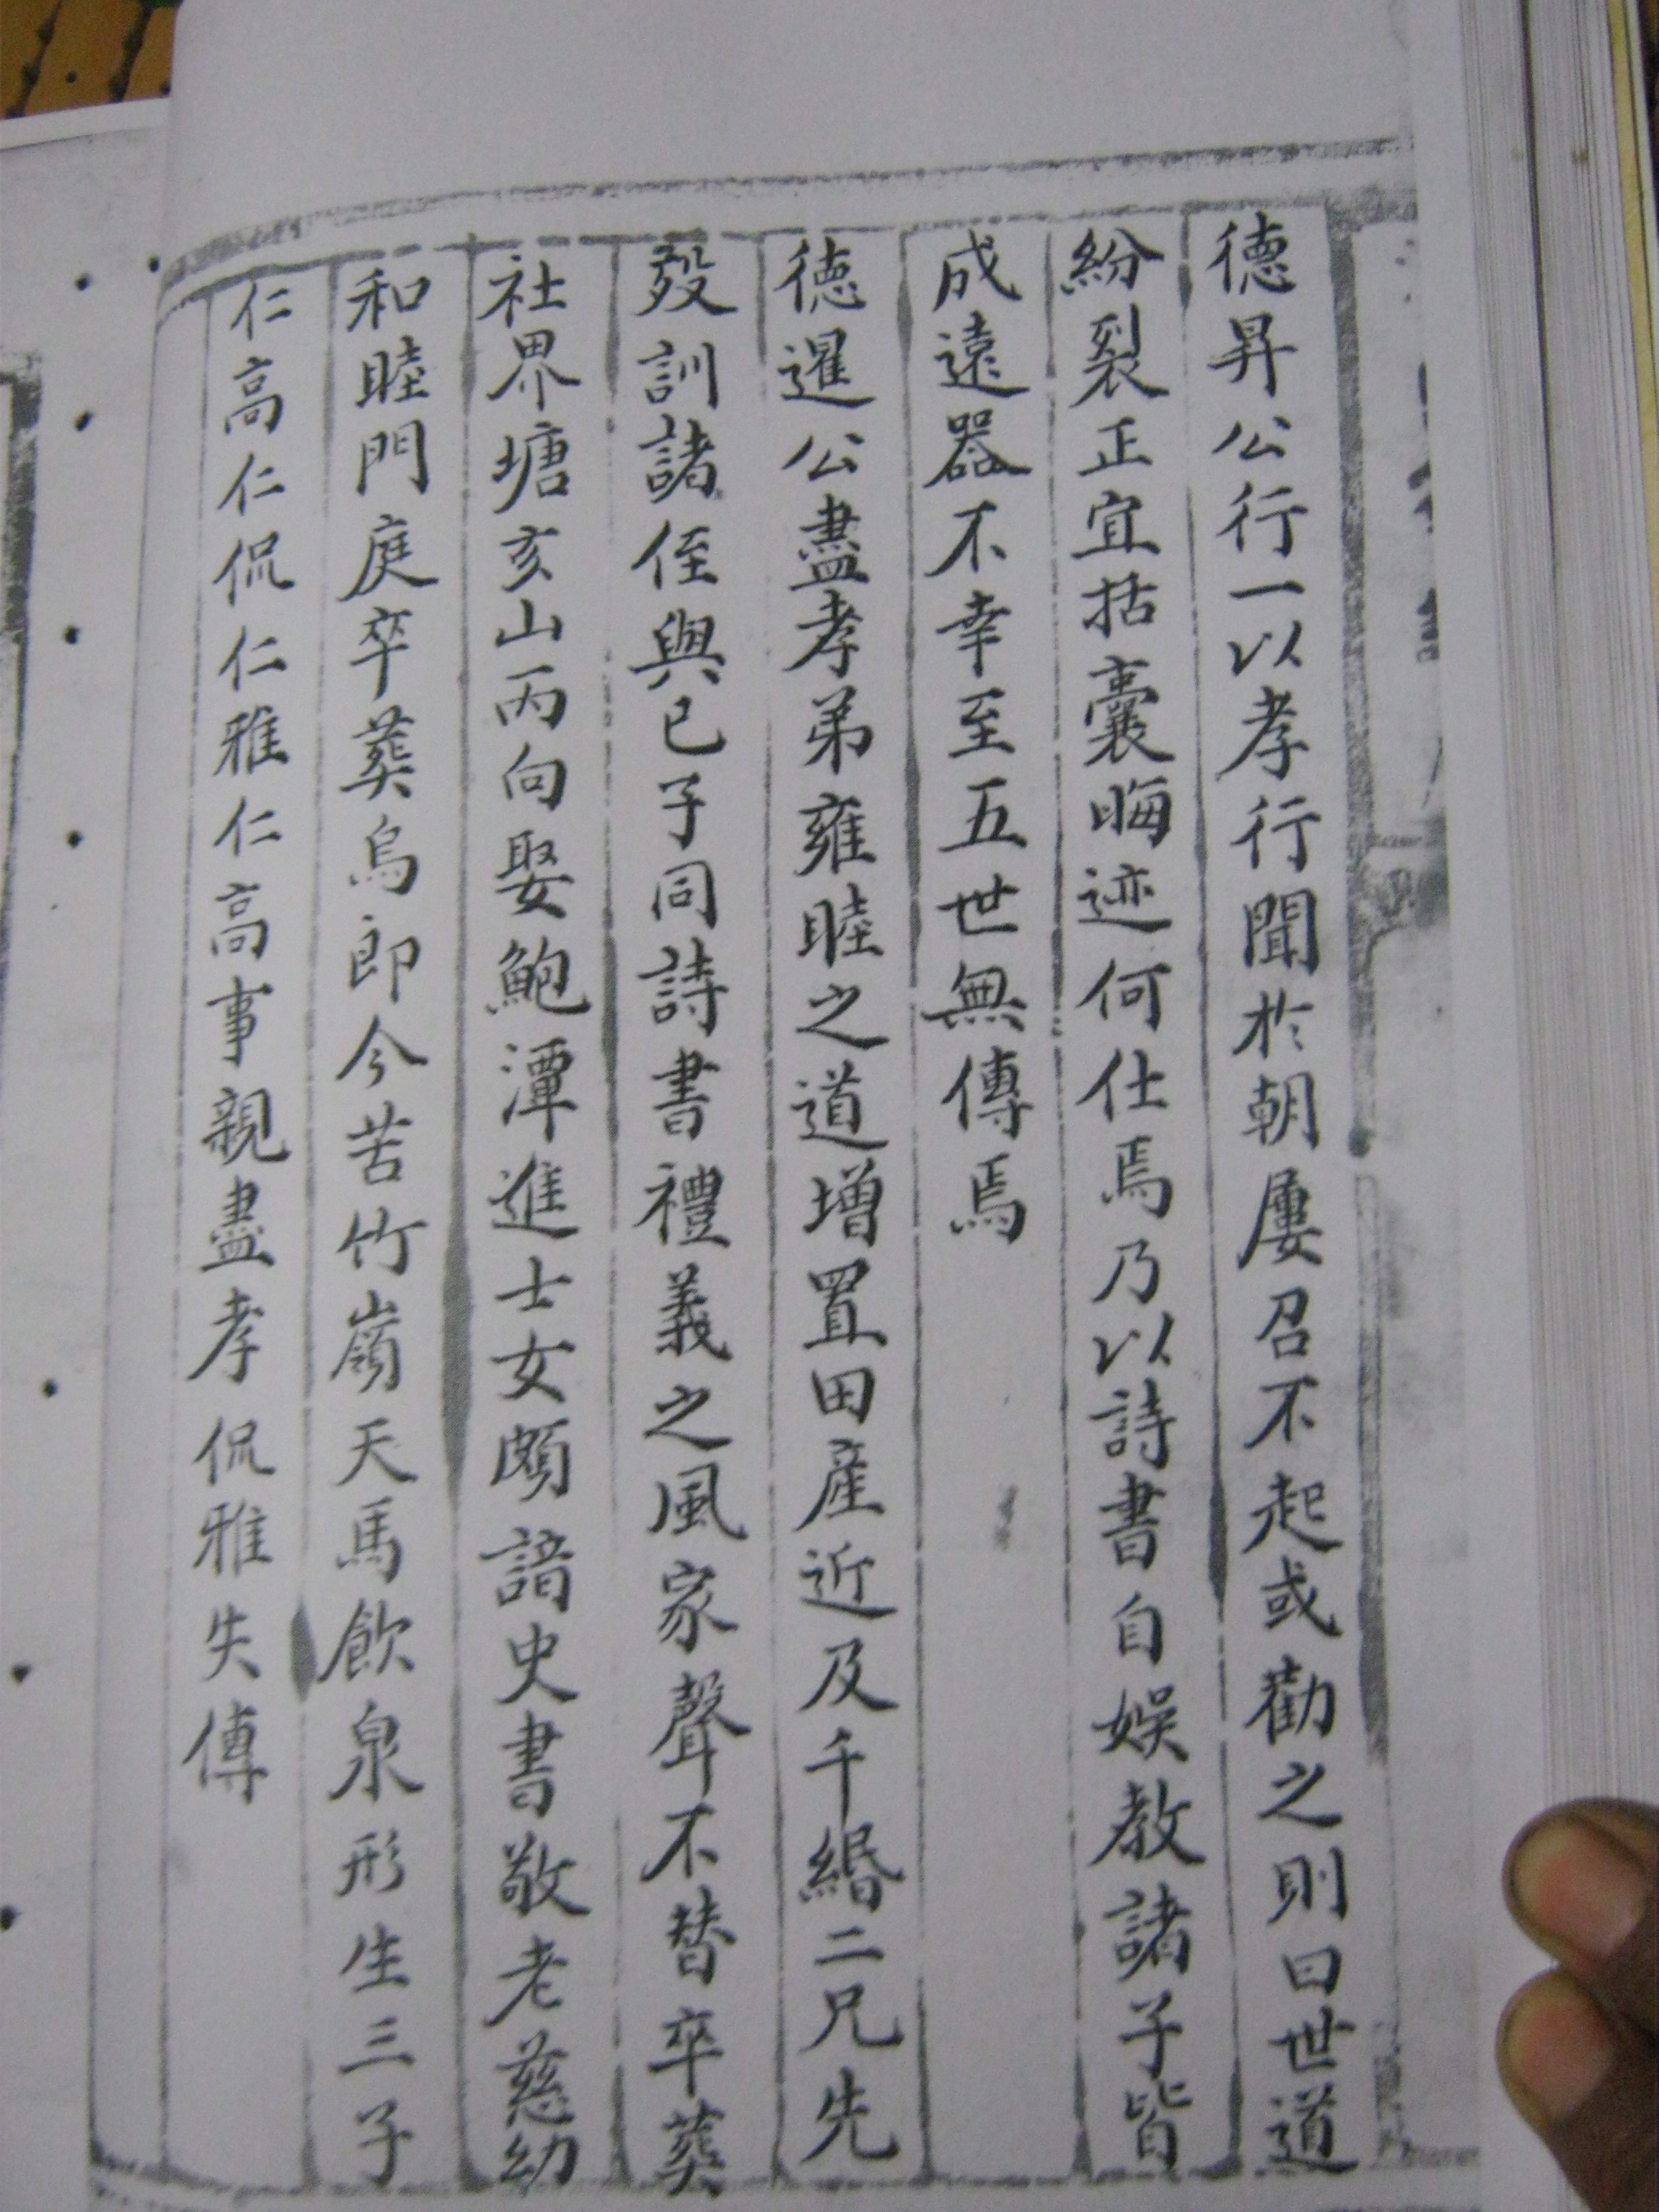 德昇公行一以孝行聞於朝屢召不起或勸之則曰世道
紛裂正宜括囊晦迹何仕焉乃以詩書自娛教諸子皆
成遠器不幸至五世無傳焉
德暹公盡孝弟雍睦之道增置田產近及千緡二兄先
歿訓諸侄與已子同詩書禮義之風家聲不替卒葬
社界塘亥山丙向娶鮑潭進士女頗諳史書敬老慈幼
和睦門庭卒葬烏郎今苦竹嶺天馬飲泉形生三子
仁高仁侃仁雅仁高事親盡孝侃雅失傳